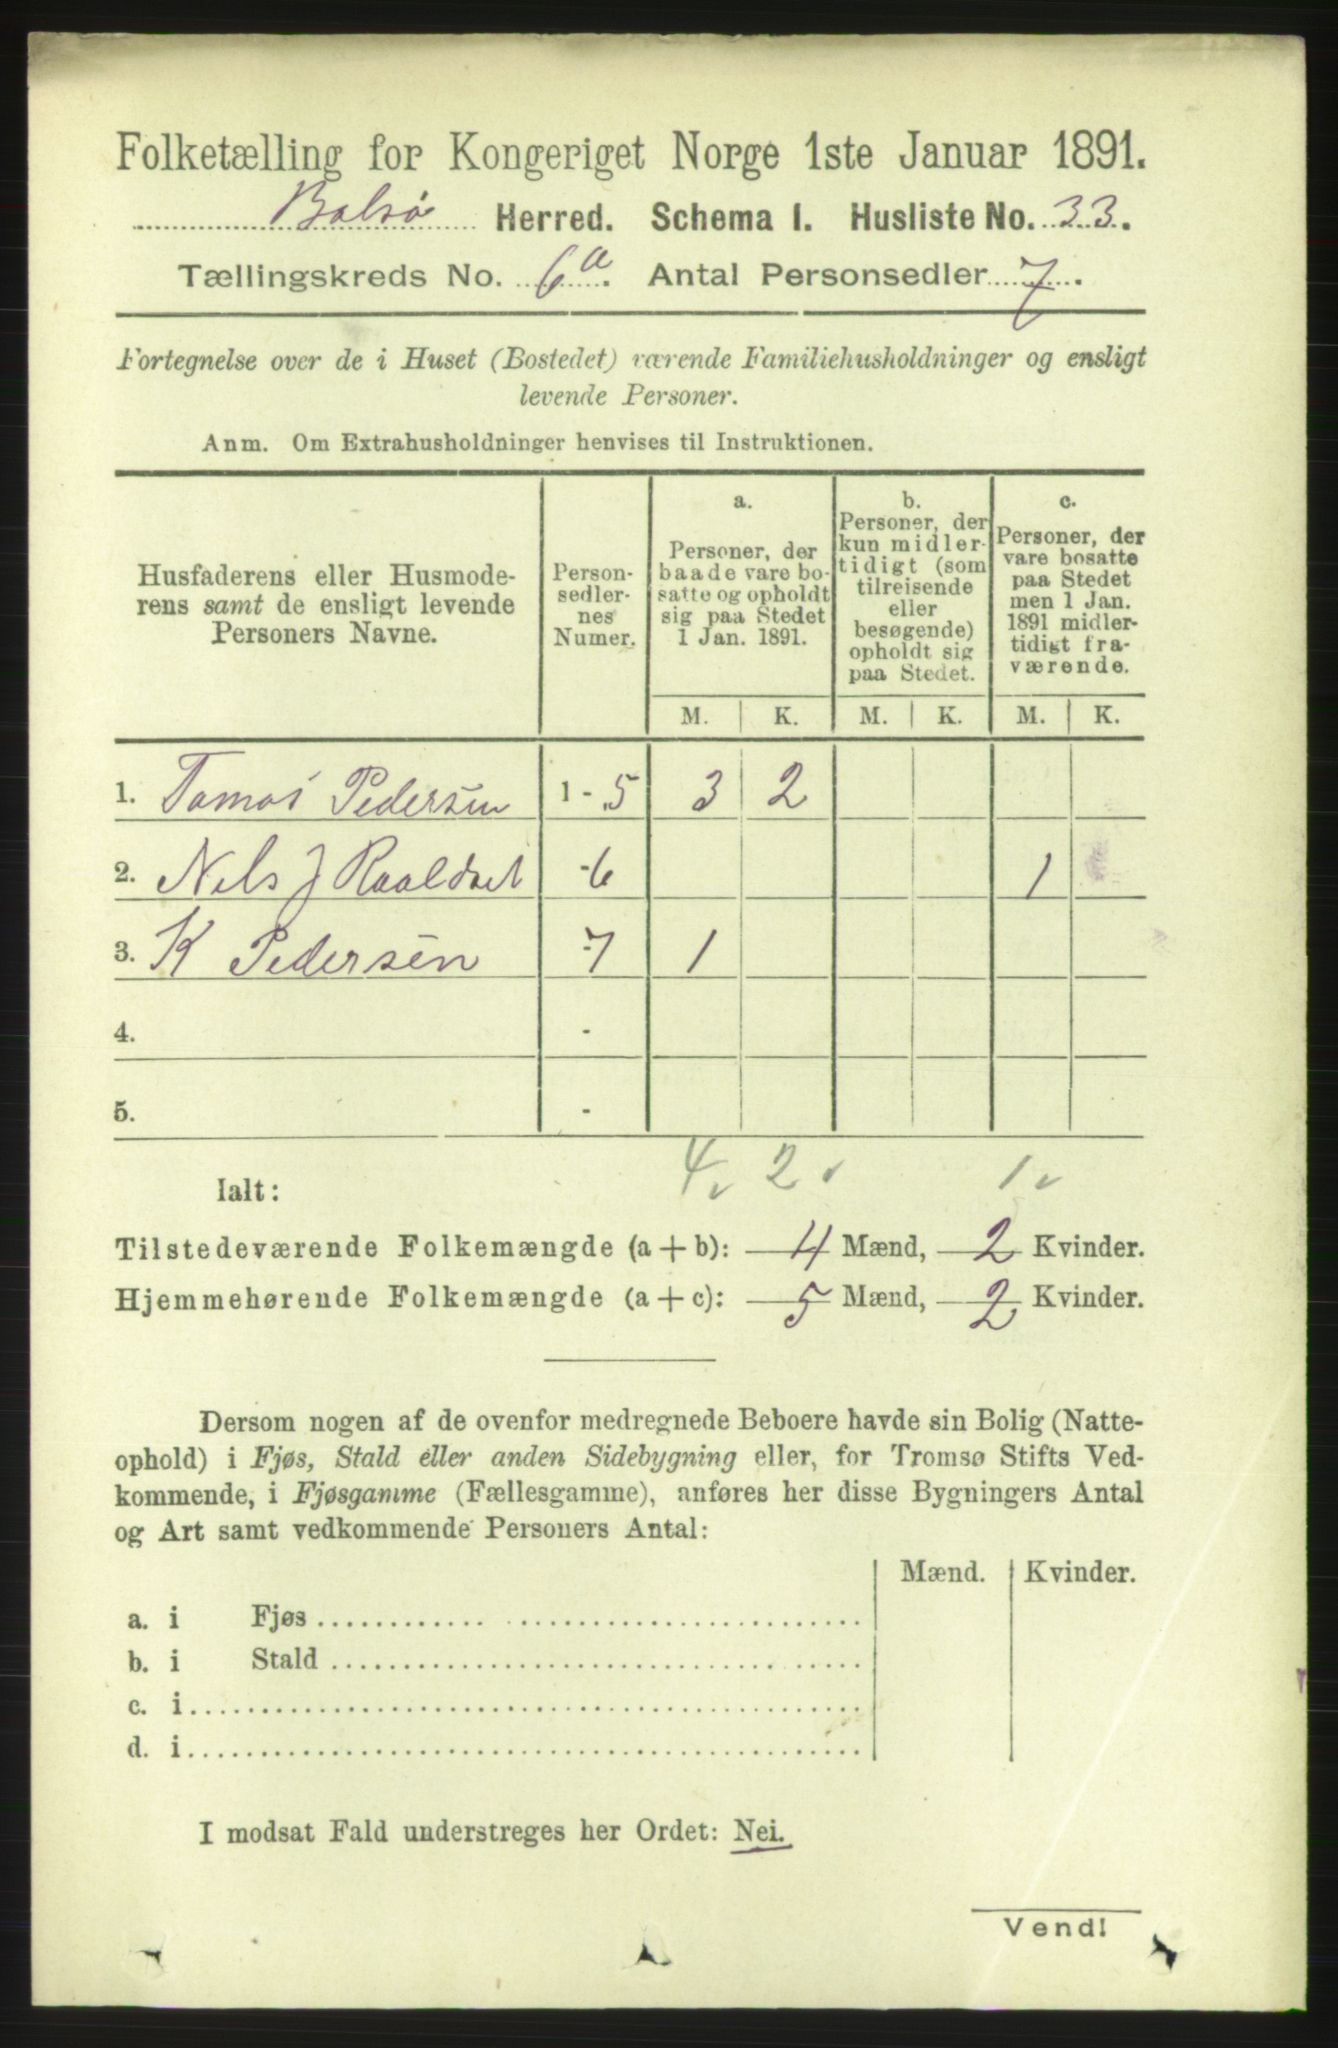 Folketælling for Kongeriget Norge 1ste Januar 1891.
Bolsø Herred. Schema I. Husliste No. 33.
Tællingskreds No. 6a. Antal Personsedler 7.
Fortegnelse over de i Huset (Bostedet) værende Familiehusholdninger og ensligt
levende Personer.
Anm. Om Extrahusholdninger henvises til Instruktionen.
Husfaderens eller Husmode-
rens samt de ensligt levende
Personers Navne.
Person-
sedler-
nes
Numer.
a.
Personer, der
baade vare bo-
satte og opholdt
sig paa Stedet
1 Jan. 1891.
b.
Personer, der
kun midler-
tidigt (som
tilreisende
eller
besøgende)
opholdt sig
paa Stedet.
c.
Personer, der
vare bosatte
paa Stedet
men 1 Jan.
1891 midler-
tidigt fra-
værende.
M. K. M. K. M. K.
1. Tomas Pedersen 1 - 5 3 2
2. Nils J -6 1
3. K Pedersen -7 1
4. -
5. -
4 2 1
Ialt:
Tilstedeværende Folkemængde (a + b): 4 Mænd, 2 Kvinder.
Hjemmehørende Folkemængde (a + c): 5 Mænd, 2 Kvinder.
Dersom nogen af de ovenfor medregnede Beboere havde sin Bolig (Natte-
ophold) i Fjøs, Stald eller anden Sidebygning eller, for Tromsø Stifts Ved-
kommende, i Fjøsgamme (Fællesgamme), anføres her disse Bygningers Antal
og Art samt vedkommende Personers Antal:
Mænd. Kvinder.
a. i Fjøs
b. i Stald
c. i
d. i
I modsat Fald understreges her Ordet: Nei.
Vend!